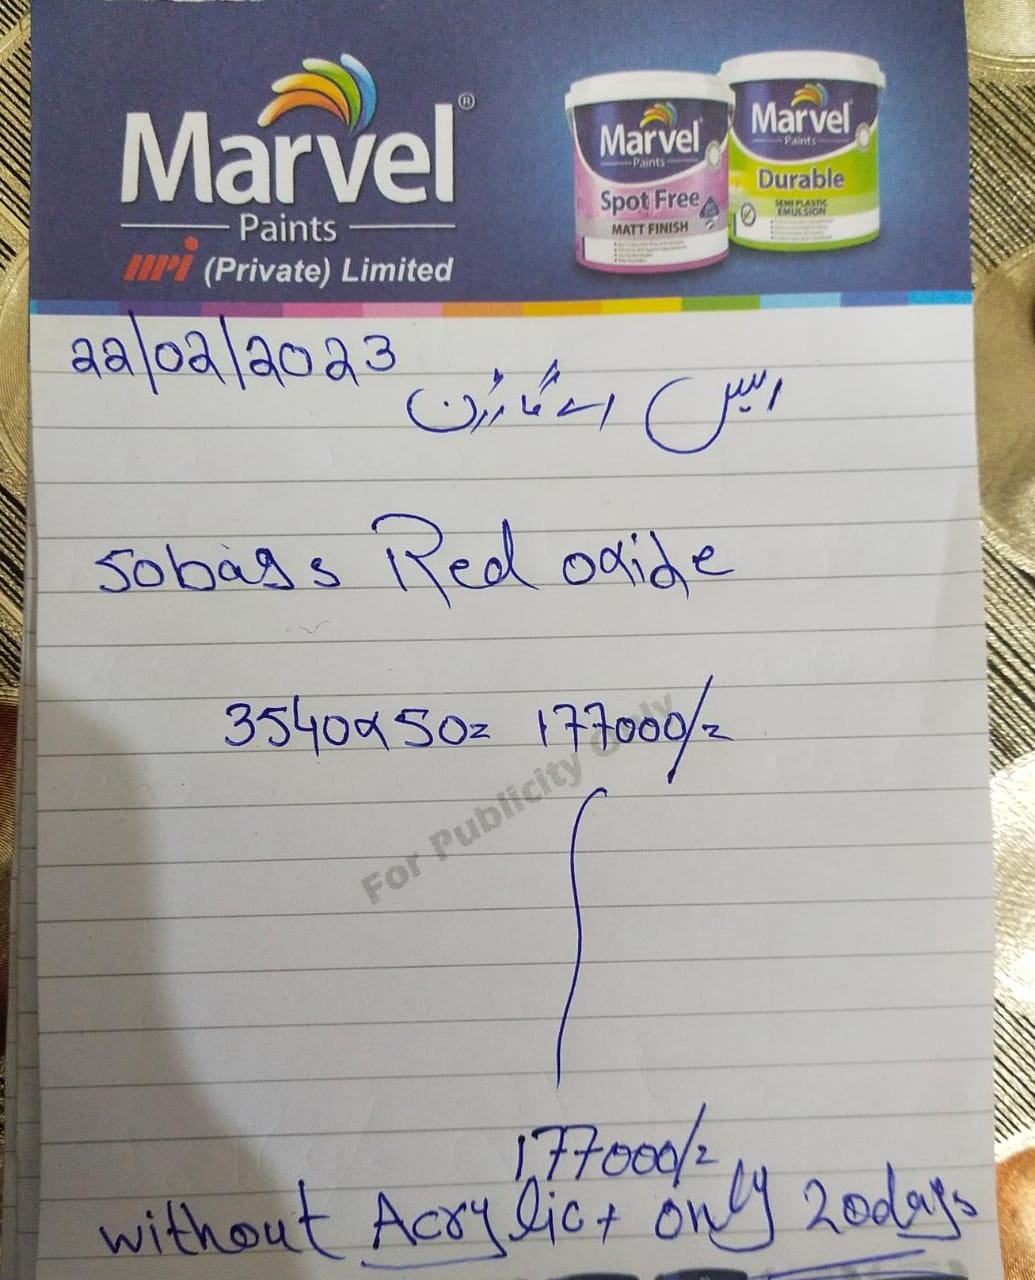 Marvel®
Paints
nri (Private) Limited
Marvel
Paints
Spot Free
MATT FINISH
Marvel
Paints
Durable
SEMI PLASTIC
EMULSION
22/02/2023
ایس اے گارڈن
50bags Red oxide
3540x50= 177000/=
For Publicity Only
177000/=
without Acrylic + only 20days